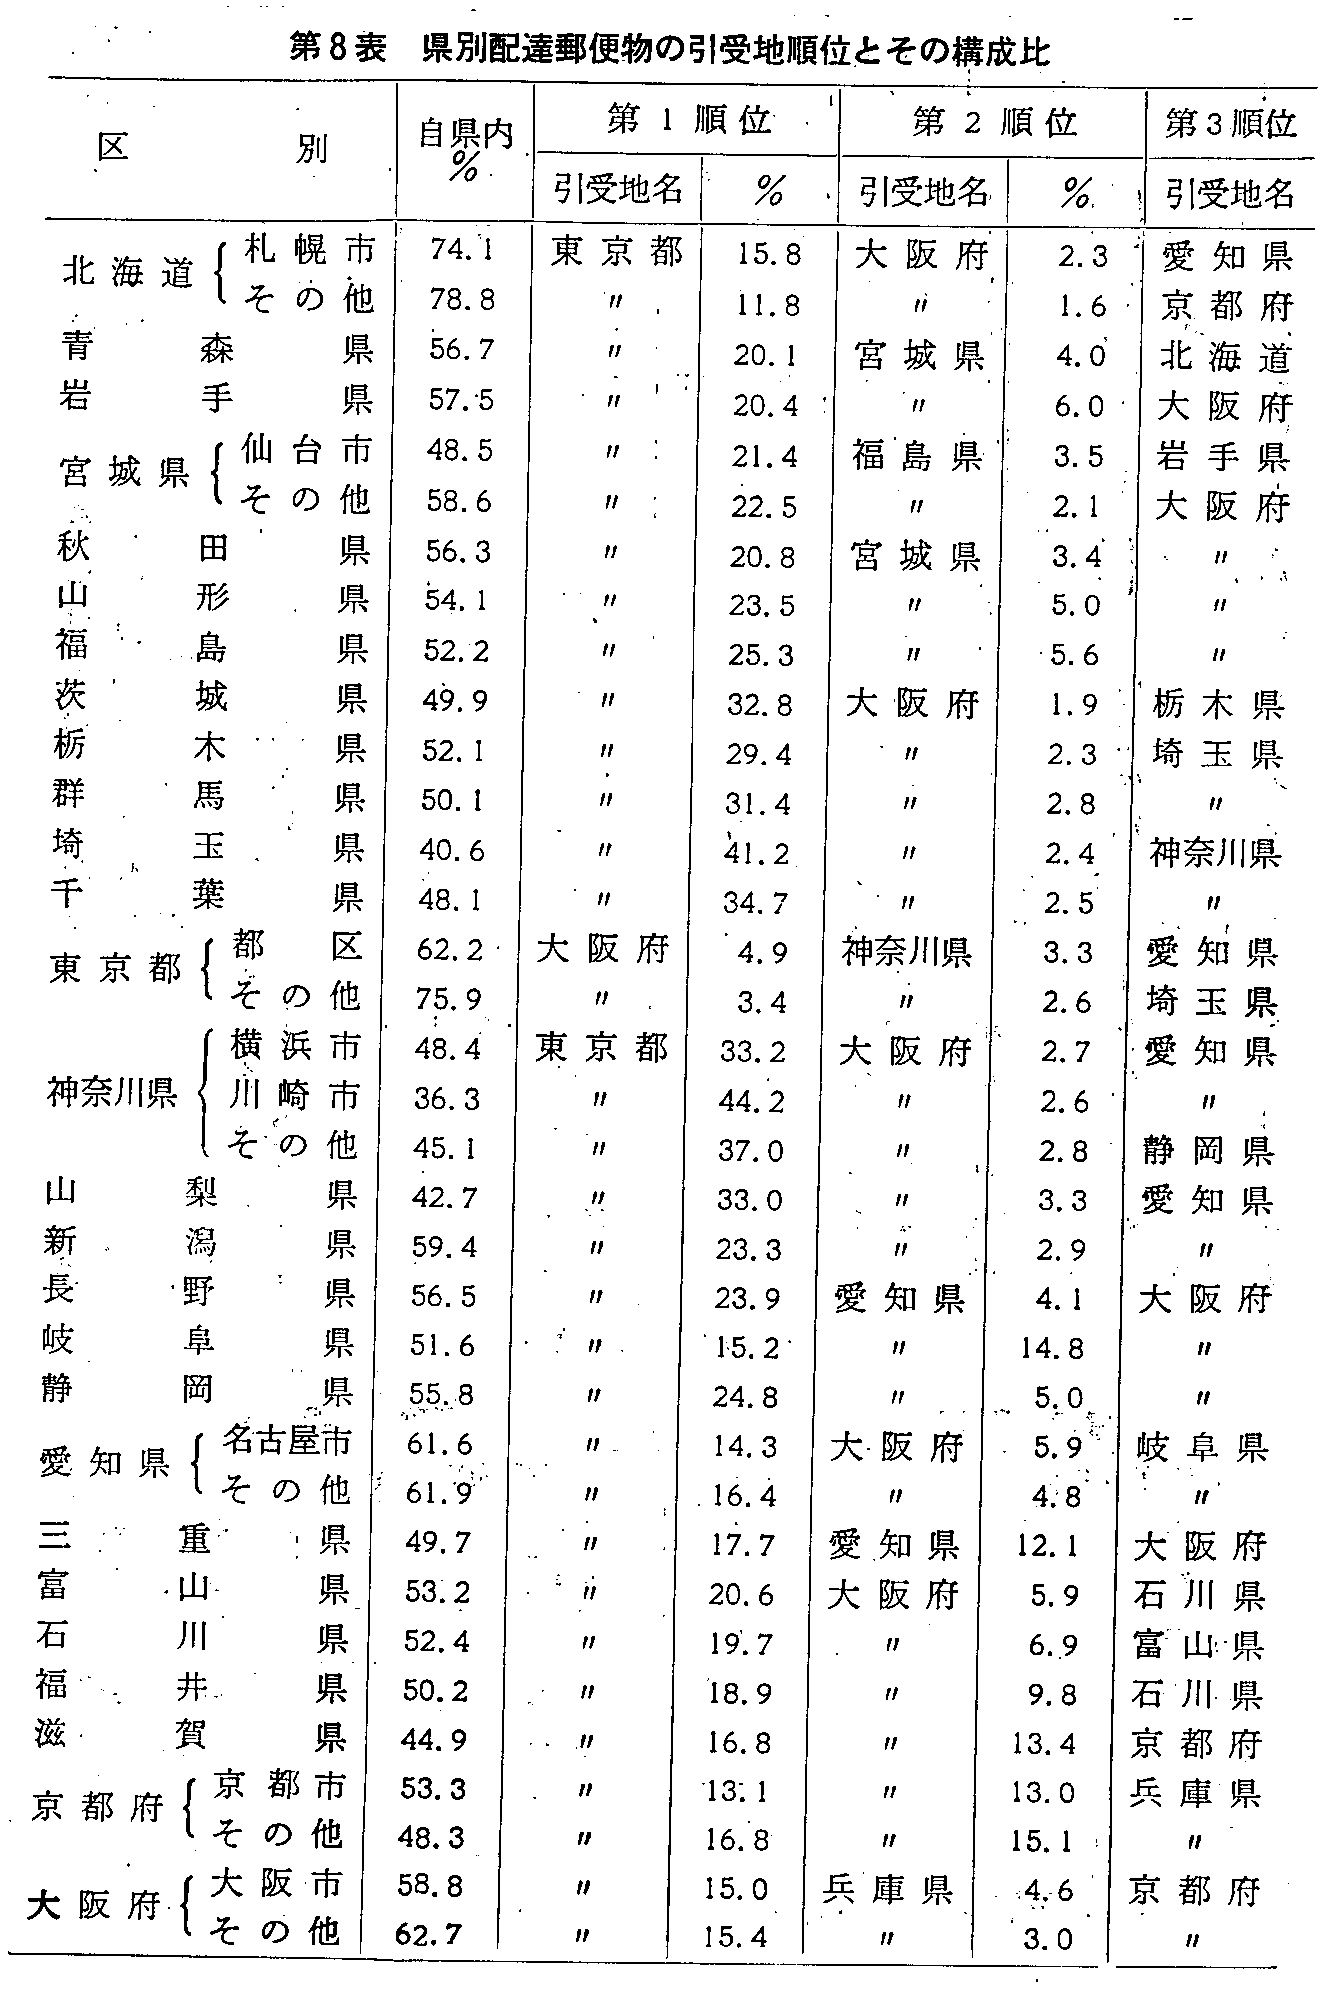 第8表 県別配達郵便物の引受地順位とその構成比
区別 自県内% 第1順位 第2順位 第3順位
引受地名 % 引受地名 % 引受地名
北海道 { 札幌市 74.1 東京都 15.8 大阪府 2.3 愛知県
その他 78.8 〃 11.8 〃 1.6 京都府
青森県 56.7 〃 20.1 宮城県 4.0 北海道
岩手県 57.5 〃 20.4 〃 6.0 大阪府
宮城県 { 仙台市 48.5 〃 21.4 福島県 3.5 岩手県
その他 58.6 〃 22.5 〃 2.1 大阪府
秋田県 56.3 〃 20.8 宮城県 3.4 〃
山形県 54.1 〃 23.5 〃 5.0 〃
福島県 52.2 〃 25.3 〃 5.6 〃
茨城県 49.9 〃 32.8 大阪府 1.9 栃木県
栃木県 52.1 〃 29.4 〃 2.3 埼玉県
群馬県 50.1 〃 31.4 〃 2.8 〃
埼玉県 40.6 〃 41.2 〃 2.4 神奈川県
千葉県 48.1 〃 34.7 〃 2.5 〃
東京都 { 都区 62.2 大阪府 4.9 神奈川県 3.3 愛知県
その他 75.9 〃 3.4 〃 2.6 埼玉県
神奈川県 { 横浜市 48.4 東京都 33.2 大阪府 2.7 愛知県
川崎市 36.3 〃 44.2 〃 2.6 〃
その他 45.1 〃 37.0 〃 2.8 静岡県
山梨県 42.7 〃 33.0 〃 3.3 愛知県
新潟県 59.4 〃 23.3 〃 2.9 〃
長野県 56.5 〃 23.9 愛知県 4.1 大阪府
岐阜県 51.6 〃 15.2 〃 14.8 〃
静岡県 55.8 〃 24.8 〃 5.0 〃
愛知県 { 名古屋市 61.6 〃 14.3 大阪府 5.9 岐阜県
その他 61.9 〃 16.4 〃 4.8 〃
三重県 49.7 〃 17.7 愛知県 12.1 大阪府
富山県 53.2 〃 20.6 大阪府 5.9 石川県
石川県 52.4 〃 19.7 〃 6.9 富山県
福井県 50.2 〃 18.9 〃 9.8 石川県
滋賀県 44.9 〃 16.8 〃 13.4 京都府
京都府 { 京都市 53.3 〃 13.1 〃 13.0 兵庫県
その他 48.3 〃 16.8 〃 15.1 〃
大阪府 { 大阪市 58.8 〃 15.0 兵庫県 4.6 京都府
その他 62.7 〃 15.4 〃 3.0 〃